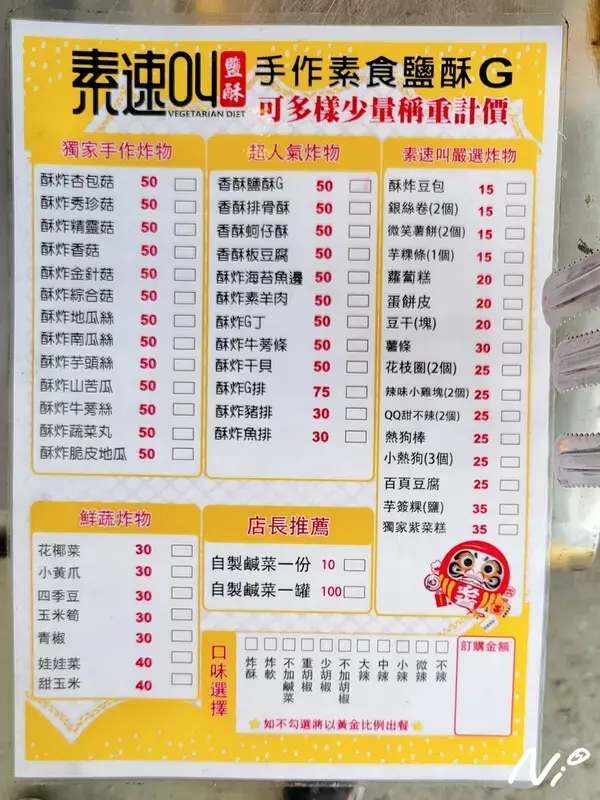 素速叫 鹽酥
VEGETARIAN DIET
手作素食鹽酥G
可多樣少量稱重計價
獨家手作炸物
酥炸杏包菇 50
酥炸秀珍菇 50
酥炸精靈菇 50
酥炸香菇 50
酥炸金針菇 50
酥炸綜合菇 50
酥炸地瓜絲 50
酥炸南瓜絲 50
酥炸芋頭絲 50
酥炸山苦瓜 50
酥炸牛蒡絲 50
酥炸蔬菜丸 50
酥炸脆皮地瓜 50
超人氣炸物
香酥鹽酥G 50
香酥排骨酥 50
香酥蚵仔酥 50
香酥板豆腐 50
酥炸海苔魚邊 50
酥炸素羊肉 50
酥炸G丁 50
酥炸牛蒡條 50
酥炸干貝 50
酥炸G排 75
酥炸豬排 30
酥炸魚排 30
素速叫嚴選炸物
酥炸豆包 15
銀絲卷(2個) 15
微笑薯餅(2個) 15
芋粿條(1個) 15
蘿蔔糕 20
蛋餅皮 20
豆干(塊) 20
薯條 30
花枝圈(2個) 25
辣味小雞塊(2個) 25
QQ甜不辣(2個) 25
熱狗棒 25
小熱狗(3個) 25
百頁豆腐 25
芋簽粿(鹽) 35
獨家紫菜糕 35
鮮蔬炸物
花椰菜 30
小黃爪 30
四季豆 30
玉米筍 30
青椒 30
娃娃菜 40
甜玉米 40
店長推薦
自製鹹菜一份 10
自製鹹菜一罐 100
口味選擇
炸酥
炸軟
不加鹹菜
重胡椒
少胡椒
不加胡椒
大辣
中辣
小辣
微辣
不辣
如不勾選將以黃金比例出餐
訂購金額
Ni